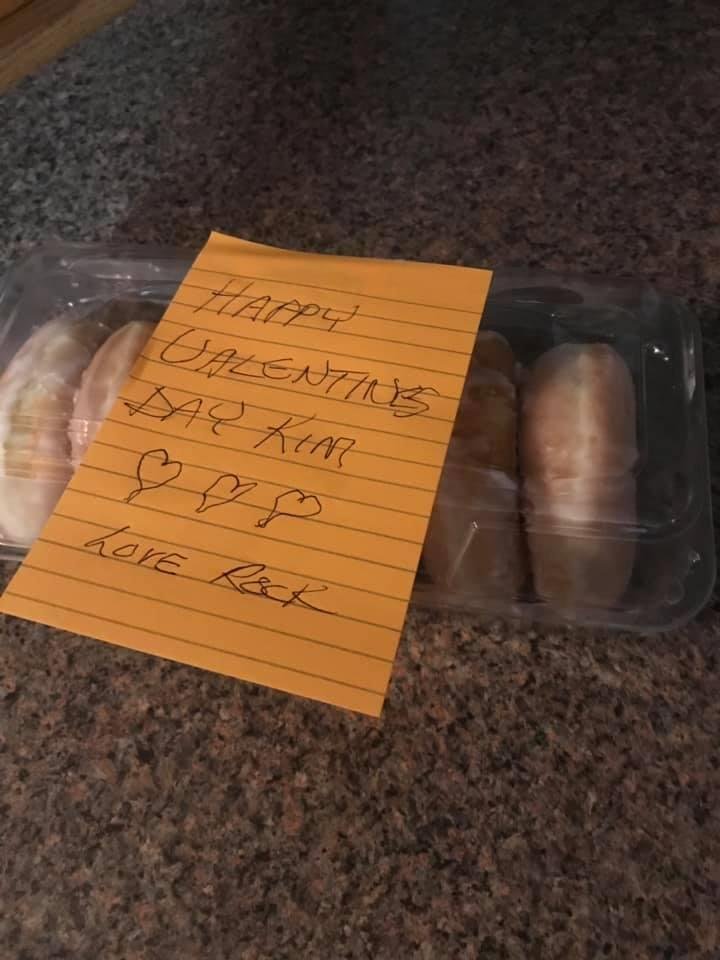 HAPPY
VALENTINES
DAY KIM
LOVE ROCK